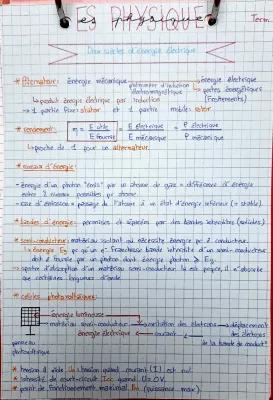 ES PHYSIQUE
es physique
Term
Deux siècles d'énergie électrique
* Alternateur: énergie mécanique → énergie électrique
phénomène d'induction électromagnétique
↳ pertes énergétiques (frottements)
↳ produit énergie électrique par induction
→ 1 partie fixe: stator et 1 partie mobile: rotor
* rendement: η = E utile / E fournie = E électrique / E mécanique = P électrique / P mécanique
↳ proche de 1 pour un alternateur.
* niveau d'énergie:
- énergie d'un photon "émis" par un atome de gaz = différence d'énergie
entre 2 niveaux possibles pr atome.
- cas d'émission = passage de l'atome à un état d'énergie inférieur (+ stable).
* bandes d'énergie: permises et séparées par des bandes interdites (solides)
* semi-conducteur: matériau isolant où nécessite énergie pr ê conducteur.
↳ énergie Eg pr qu'un e- franchisse bande interdite d'un semi-conducteur
doit ê fournie par un photon dont énergie photon ≥ Eg.
→ spectre d'absorption d'un matériau semi-conducteur lui est propre, il n'absorbe
que certaines longueurs d'onde.
* cellules photovoltaïques:
énergie lumineuse
matériau semi-conducteur → excitation des électrons → déplacement
des électrons
énergie électrique ← courant
de la bande de conduct°
panneau
photovoltaïque
* tension à vide Uv tension quand courant (I) est nul
* intensité de court-circuit Icc quand U=0V.
* point de fonctionnement maximal Pm (puissance max).